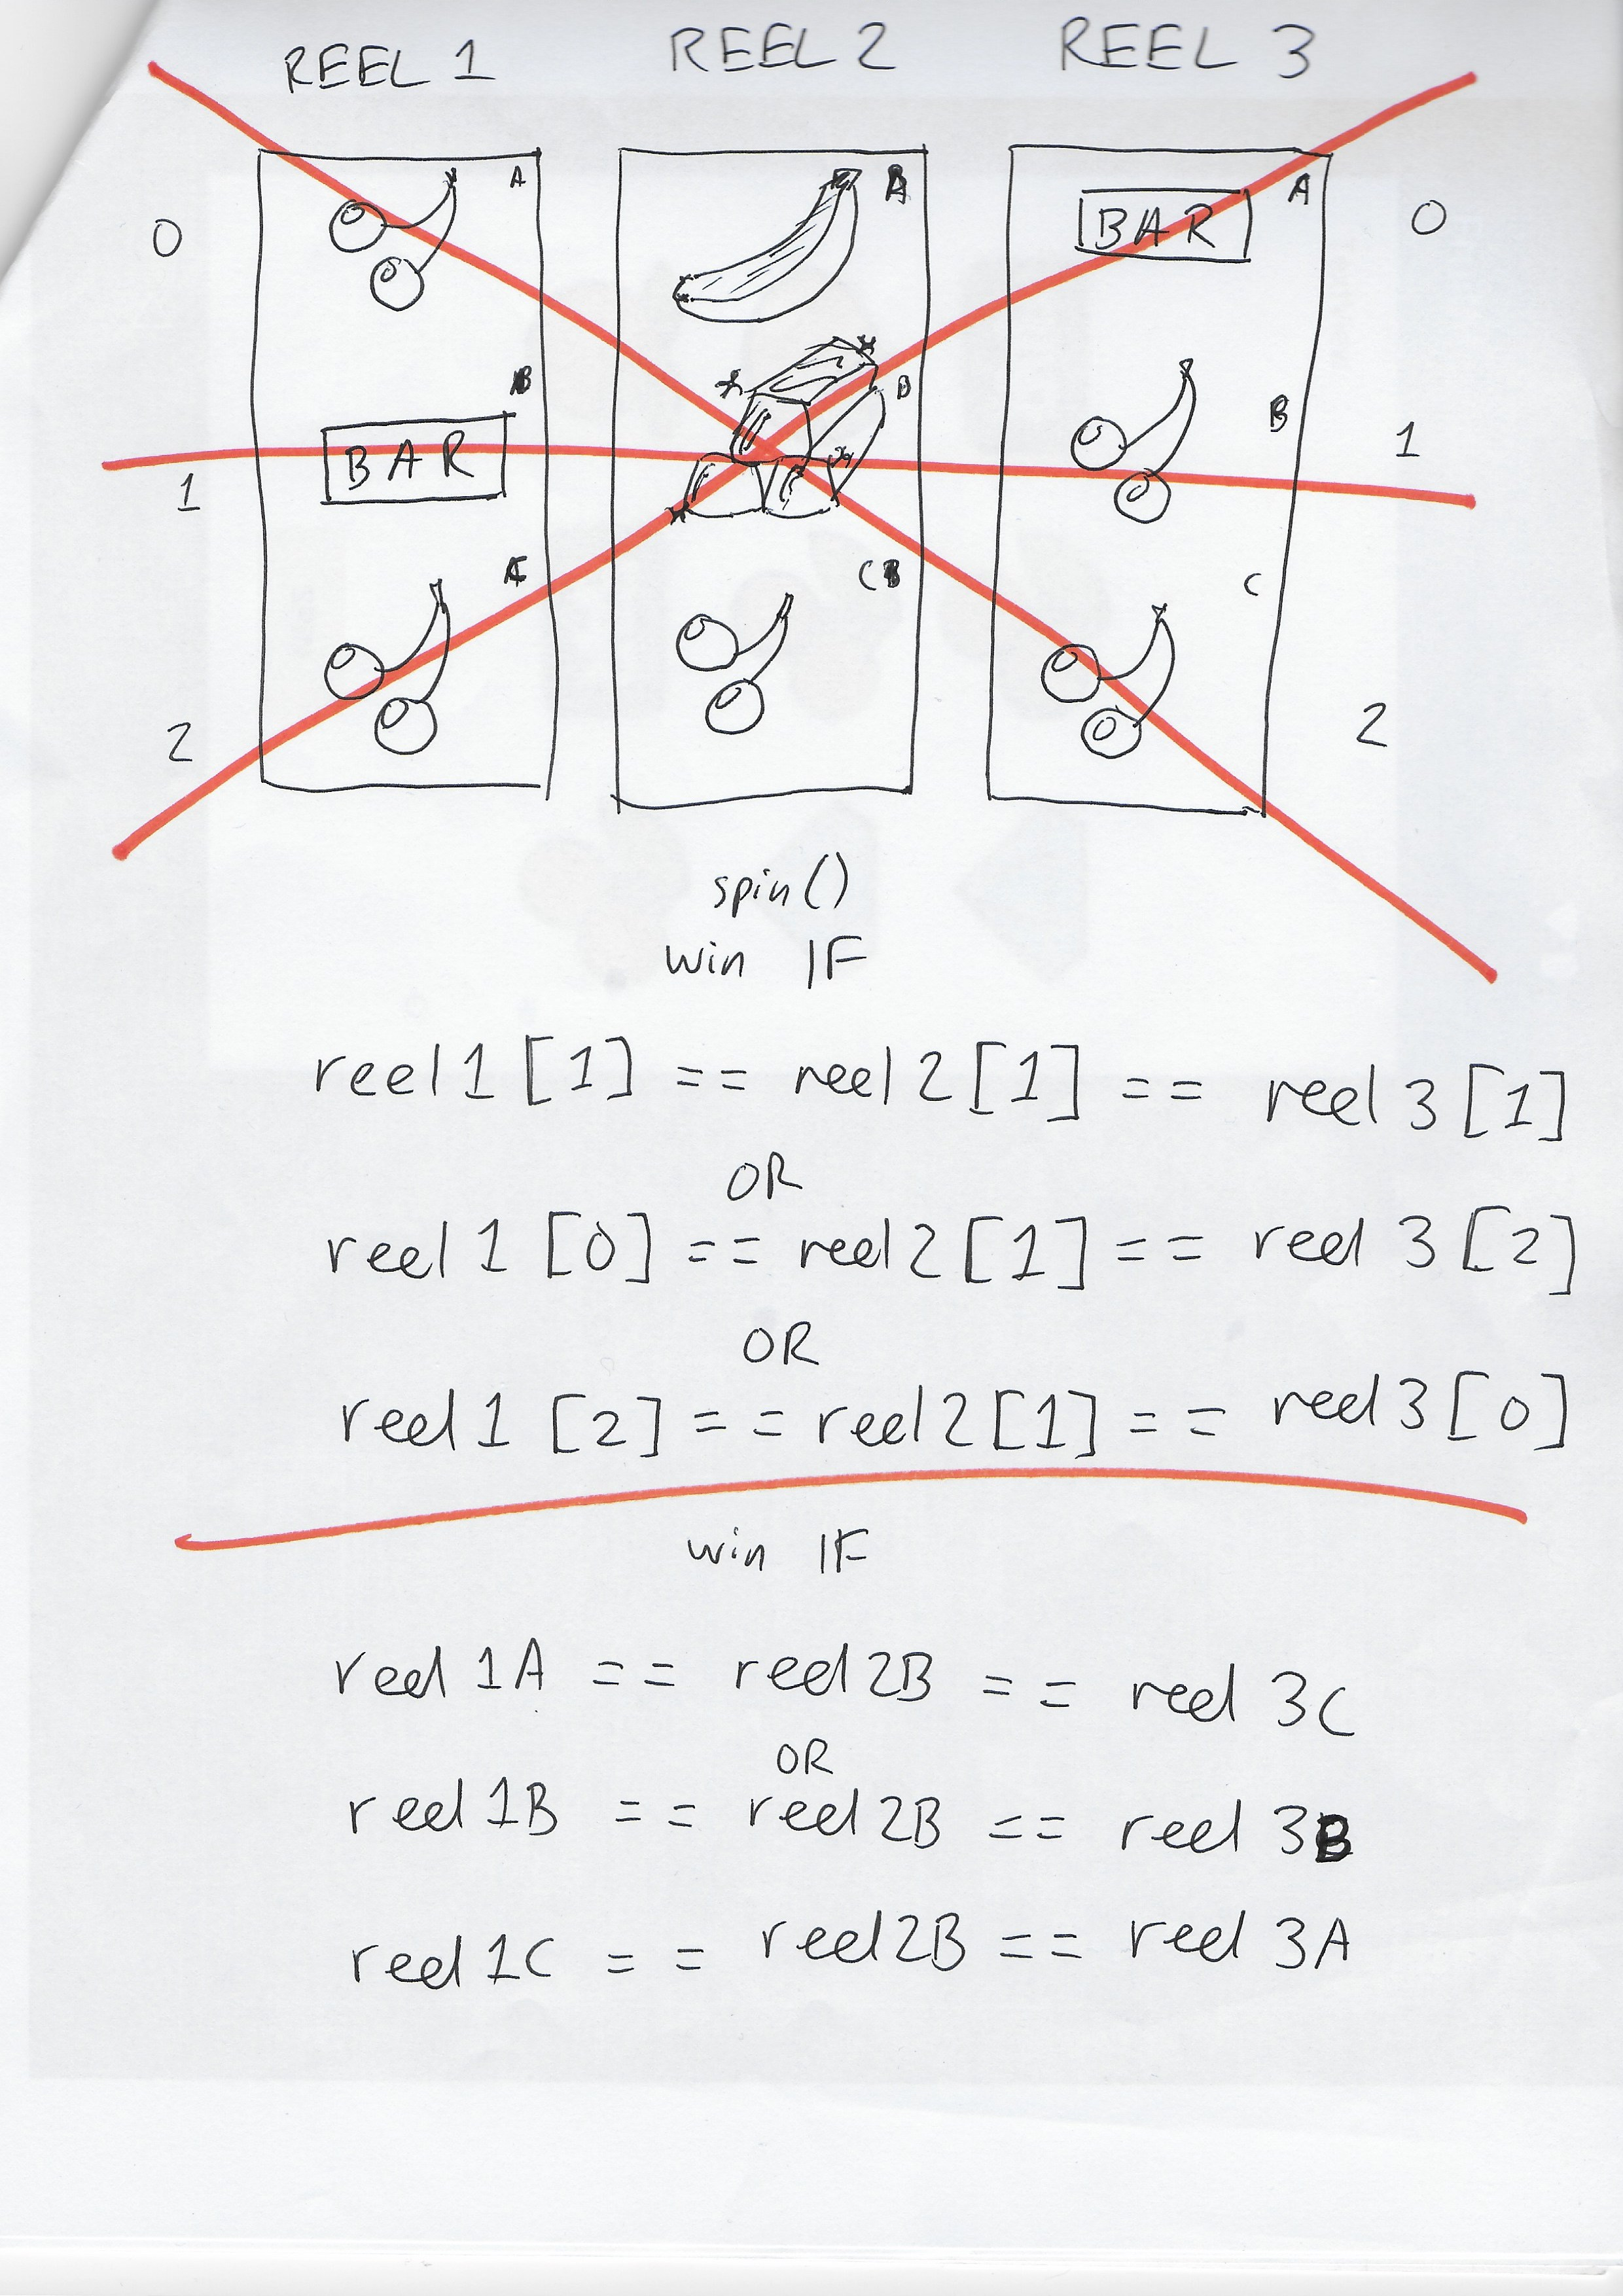 REEL 1 REEL 2 REEL 3
A A A
0 BAR 0
B B B
1 BAR 1
C C
2 2
spin()
win IF
reel1[1] == reel2[1] == reel3[1]
OR
reel1[0] == reel2[1] == reel3[2]
OR
reel1[2] == reel2[1] == reel3[0]
win IF
reel1A == reel2B == reel3C
OR
reel1B == reel2B == reel3B
reel1C == reel2B == reel3A